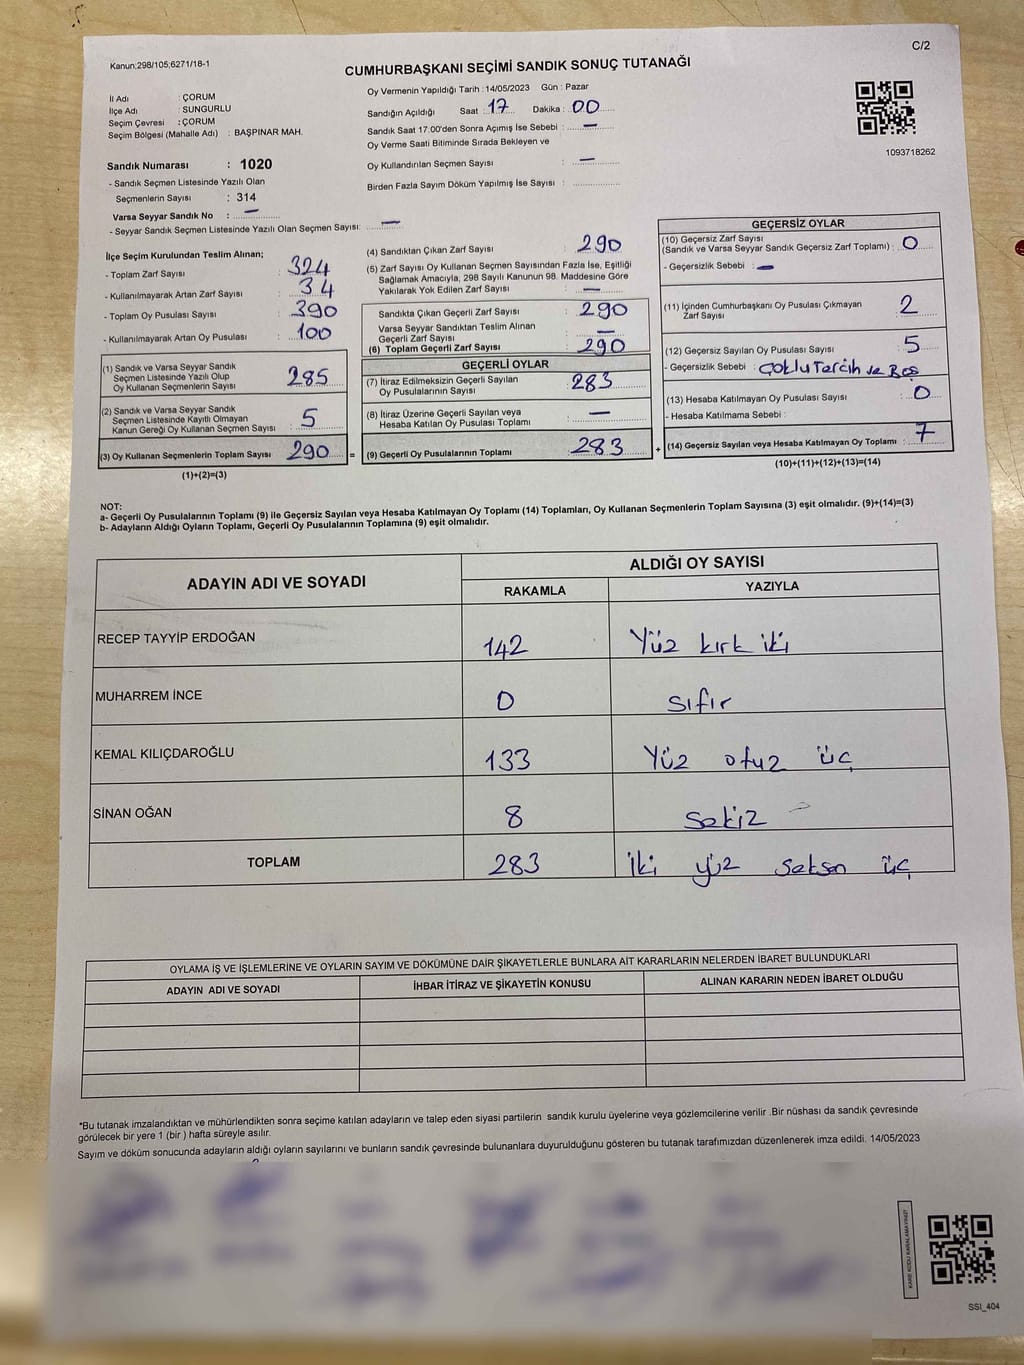 C/2
Kanun;298/105;6271/18-1
CUMHURBAŞKANI SEÇİMİ SANDIK SONUÇ TUTANAĞI
İl Adı : ÇORUM
İlçe Adı : SUNGURLU
Seçim Çevresi : ÇORUM
Seçim Bölgesi (Mahalle Adı) : BAŞPINAR MAH.
Oy Vermenin Yapıldığı Tarih : 14/05/2023 Gün : Pazar
Sandığın Açıldığı Saat : 17 Dakika : 00
Sandık Saat 17:00'den Sonra Açımış İse Sebebi : —
Oy Verme Saati Bitiminde Sırada Bekleyen ve
Oy Kullandırılan Seçmen Sayısı : —
Birden Fazla Sayım Döküm Yapılmış İse Sayısı :
1093718262
Sandık Numarası : 1020
- Sandık Seçmen Listesinde Yazılı Olan
Seçmenlerin Sayısı : 314
Varsa Seyyar Sandık No : —
- Seyyar Sandık Seçmen Listesinde Yazılı Olan Seçmen Sayısı: —
İlçe Seçim Kurulundan Teslim Alınan;
- Toplam Zarf Sayısı : 324
- Kullanılmayarak Artan Zarf Sayısı : 34
- Toplam Oy Pusulası Sayısı : 390
- Kullanılmayarak Artan Oy Pusulası : 100
(1) Sandık ve Varsa Seyyar Sandık
Seçmen Listesinde Yazılı Olup
Oy Kullanan Seçmenlerin Sayısı : 285
(2) Sandık ve Varsa Seyyar Sandık
Seçmen Listesinde Kayıtlı Olmayan
Kanun Gereği Oy Kullanan Seçmen Sayısı : 5
(3) Oy Kullanan Seçmenlerin Toplam Sayısı : 290 =
(1)+(2)=(3)
(4) Sandıktan Çıkan Zarf Sayısı : 290
(5) Zarf Sayısı Oy Kullanan Seçmen Sayısından Fazla İse, Eşitliği
Sağlamak Amacıyla, 298 Sayılı Kanunun 98. Maddesine Göre
Yakılarak Yok Edilen Zarf Sayısı : —
Sandıkta Çıkan Geçerli Zarf Sayısı : 290
Varsa Seyyar Sandıktan Teslim Alınan
Geçerli Zarf Sayısı : —
(6) Toplam Geçerli Zarf Sayısı : 290
GEÇERLİ OYLAR
(7) İtiraz Edilmeksizin Geçerli Sayılan
Oy Pusulalarının Sayısı : 283
(8) İtiraz Üzerine Geçerli Sayılan veya
Hesaba Katılan Oy Pusulası Toplamı : —
(9) Geçerli Oy Pusulalarının Toplamı : 283 +
GEÇERSİZ OYLAR
(10) Geçersiz Zarf Sayısı
(Sandık ve Varsa Seyyar Sandık Geçersiz Zarf Toplamı) : 0
- Geçersizlik Sebebi : —
(11) İçinden Cumhurbaşkanı Oy Pusulası Çıkmayan
Zarf Sayısı : 2
(12) Geçersiz Sayılan Oy Pusulası Sayısı : 5
- Geçersizlik Sebebi : Çoklu Tercih ve Boş
(13) Hesaba Katılmayan Oy Pusulası Sayısı : 0
- Hesaba Katılmama Sebebi :
(14) Geçersiz Sayılan veya Hesaba Katılmayan Oy Toplamı : 7
(10)+(11)+(12)+(13)=(14)
NOT:
a- Geçerli Oy Pusulalarının Toplamı (9) ile Geçersiz Sayılan veya Hesaba Katılmayan Oy Toplamı (14) Toplamları, Oy Kullanan Seçmenlerin Toplam Sayısına (3) eşit olmalıdır. (9)+(14)=(3)
b- Adayların Aldığı Oyların Toplamı, Geçerli Oy Pusulalarının Toplamına (9) eşit olmalıdır.
ADAYIN ADI VE SOYADI ALDIĞI OY SAYISI
RAKAMLA YAZIYLA
RECEP TAYYİP ERDOĞAN 142 Yüz kırk iki
MUHARREM İNCE 0 sıfır
KEMAL KILIÇDAROĞLU 133 Yüz otuz üç
SİNAN OĞAN 8 Sekiz
TOPLAM 283 iki yüz seksen üç
OYLAMA İŞ VE İŞLEMLERİNE VE OYLARIN SAYIM VE DÖKÜMÜNE DAİR ŞİKAYETLERLE BUNLARA AİT KARARLARIN NELERDEN İBARET BULUNDUKLARI
ADAYIN ADI VE SOYADI İHBAR İTİRAZ VE ŞİKAYETİN KONUSU ALINAN KARARIN NEDEN İBARET OLDUĞU
*Bu tutanak imzalandıktan ve mühürlendikten sonra seçime katılan adayların ve talep eden siyasi partilerin sandık kurulu üyelerine veya gözlemcilerine verilir .Bir nüshası da sandık çevresinde
görülecek bir yere 1 (bir ) hafta süreyle asılır.
Sayım ve döküm sonucunda adayların aldığı oyların sayılarını ve bunların sandık çevresinde bulunanlara duyurulduğunu gösteren bu tutanak tarafımızdan düzenlenerek imza edildi. 14/05/2023
KARE KODU KARALAMAYINIZ!
SSI_404